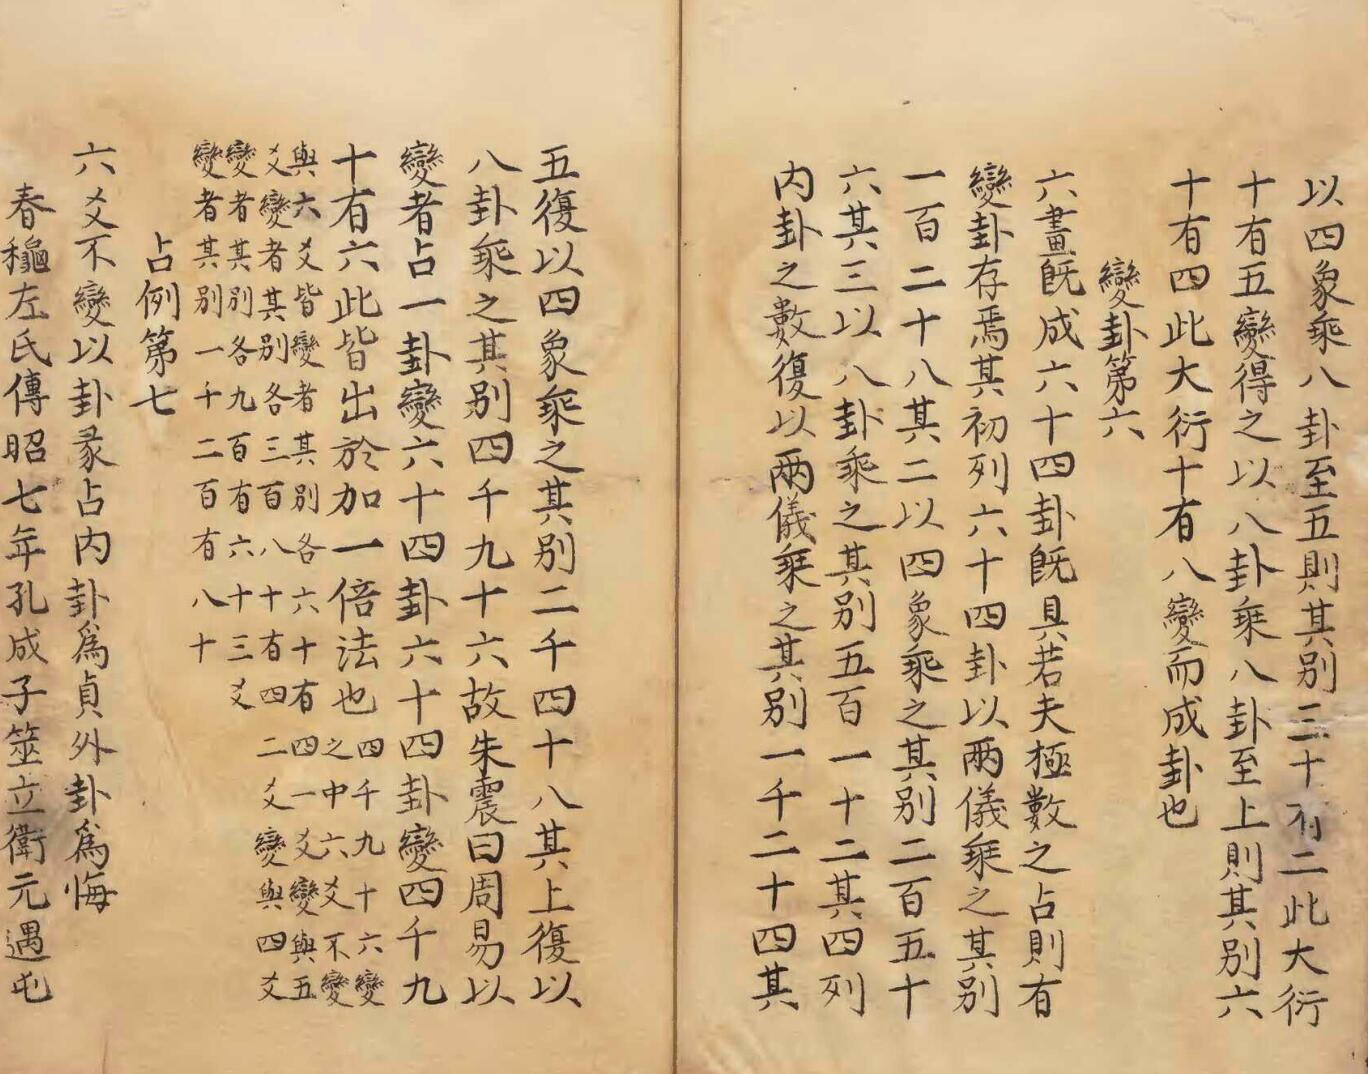 以四象乘八卦至五則其別三十有二此大衍
十有五變得之以八卦乘八卦至上則其別六
十有四此大衍十有八變而成卦也
變卦第六
六畫既成六十四卦既具若夫極數之占則有
變卦存焉其初列六十四卦以兩儀乘之其別
一百二十八其二以四象乘之其別二百五十
六其三以八卦乘之其別五百一十二其四列
内卦之數復以兩儀乘之其別一千二十四其
五復以四象乘之其別二千四十八其上復以
八卦乘之其別四千九十六故朱震曰周易以
變者占一卦變六十四卦六十四卦變四千九
十有六此皆出於加一倍法也
四千九十六變
之中六爻不變
與六爻皆變者其別各六十有四一爻變與五
爻變者其別各三百八十有四二爻變與四爻
變者其別各九百有六十三爻
變者其別一千二百有八十
占例第七
六爻不變以卦彖占内卦爲貞外卦爲悔
春龝左氏傳昭七年孔成子筮立衛元遇屯